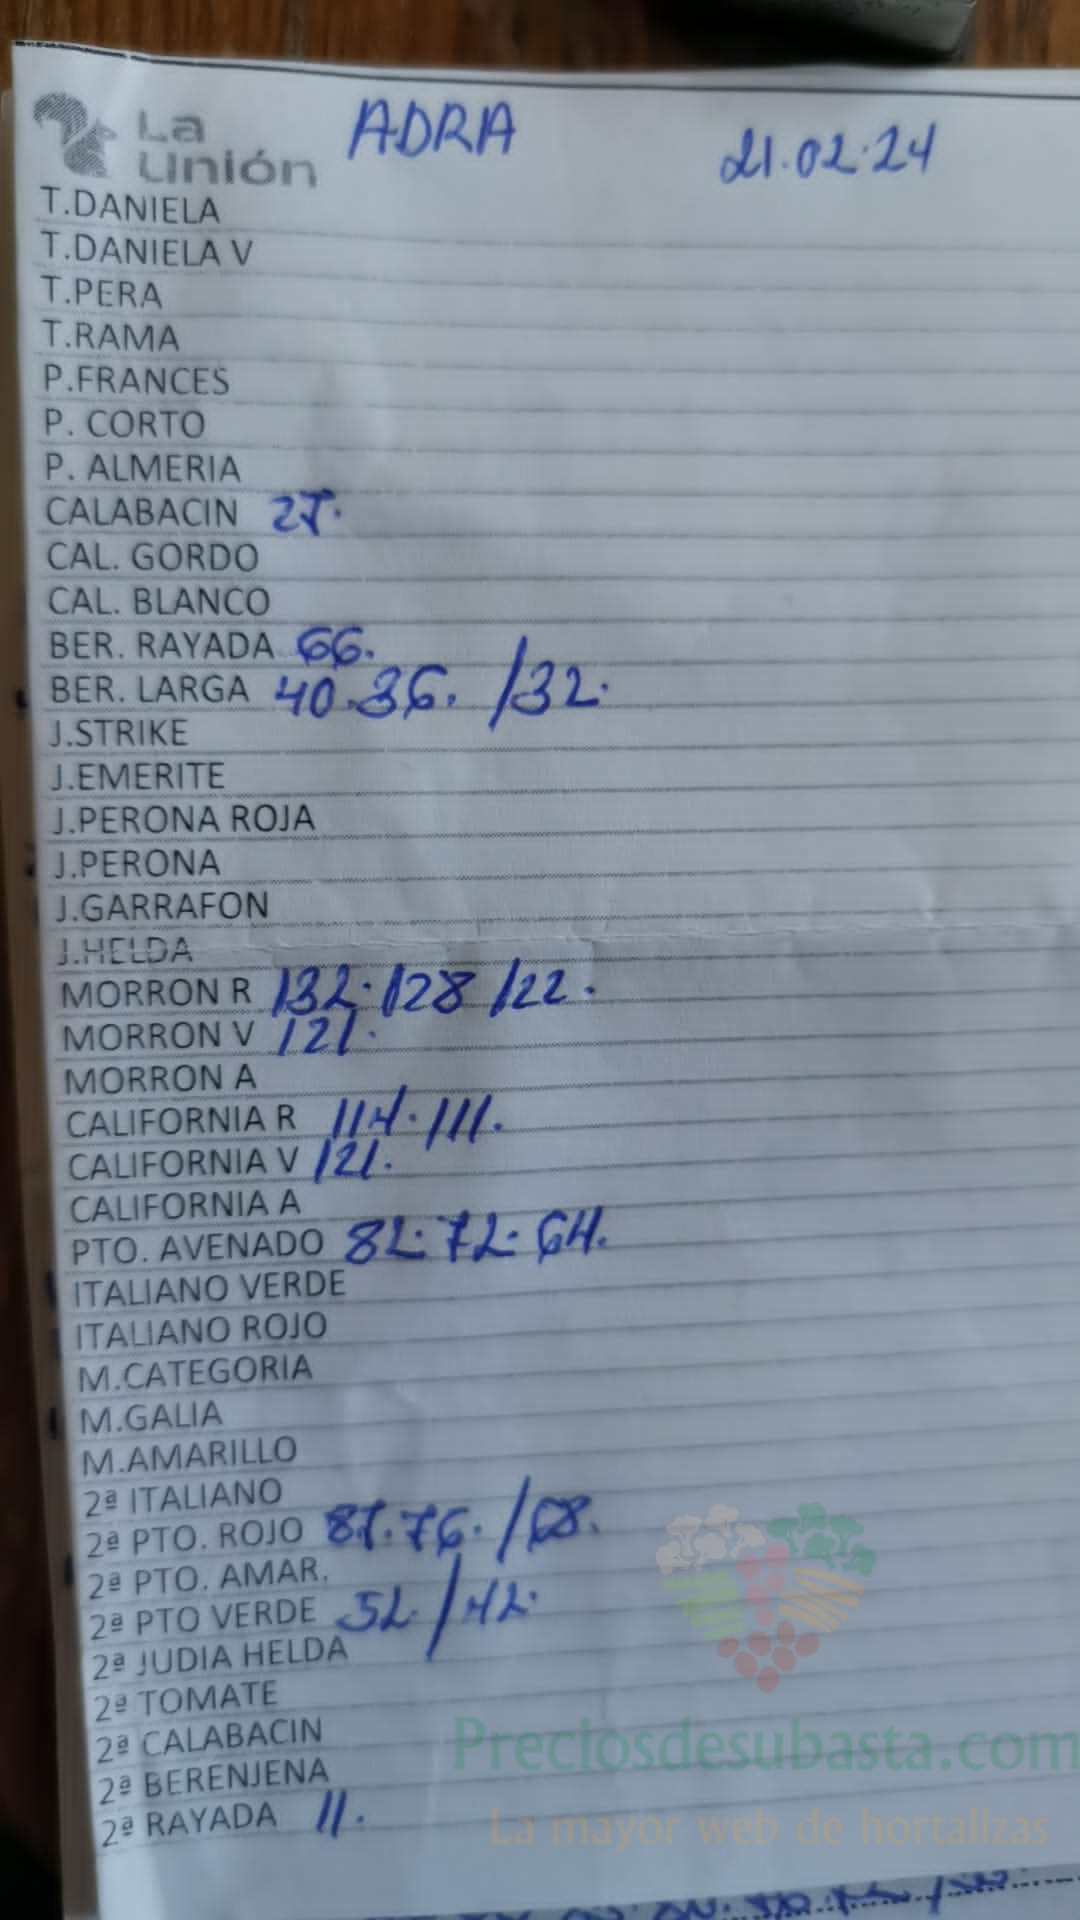 La Unión ADRA 21.02.24
T.DANIELA
T.DANIELA V
T.PERA
T.RAMA
P.FRANCES
P. CORTO
P. ALMERIA
CALABACIN 27.
CAL. GORDO
CAL. BLANCO
BER. RAYADA 66.
BER. LARGA 40.36. /32.
J.STRIKE
J.EMERITE
J.PERONA ROJA
J.PERONA
J.GARRAFON
J.HELDA
MORRON R 132.128 122.
MORRON V 121.
MORRON A
CALIFORNIA R 114.111.
CALIFORNIA V 121.
CALIFORNIA A
PTO. AVENADO 82.72.64.
ITALIANO VERDE
ITALIANO ROJO
M.CATEGORIA
M.GALIA
M.AMARILLO
2ª ITALIANO
2ª PTO. ROJO 87.76. /68.
2ª PTO. AMAR.
2ª PTO VERDE 52. /42.
2ª JUDIA HELDA
2ª TOMATE
2ª CALABACIN
2ª BERENJENA
2ª RAYADA 11.
Preciosdesubasta.com
La mayor web de hortalizas